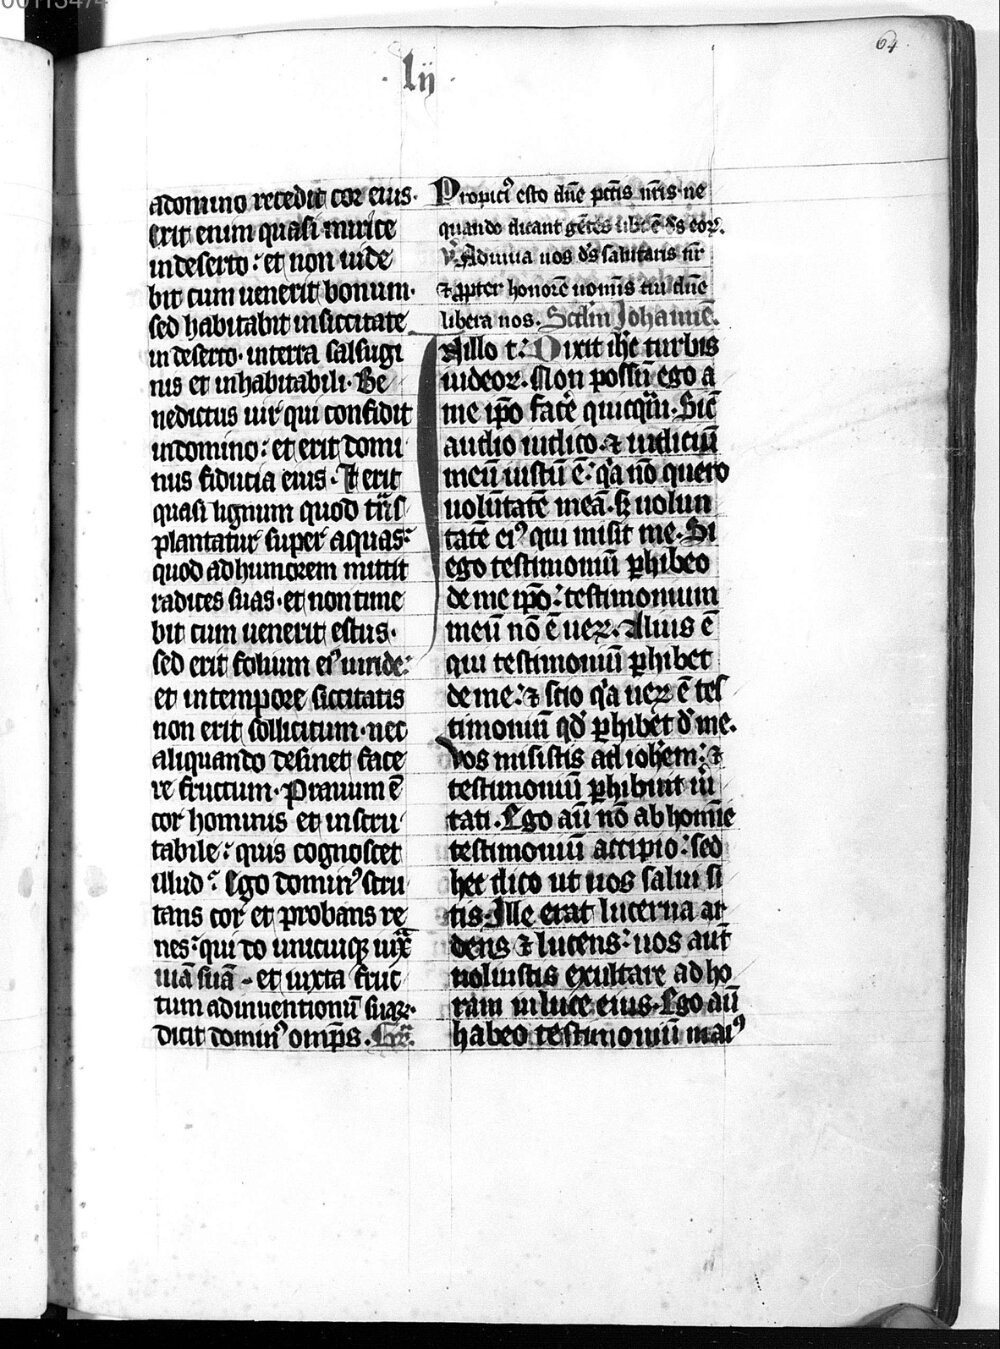 64
· lij ·
adomino recedit cor eius·
Erit enim quasi mirice
indeserto : et non uide
bit cum uenerit bonum·
sed habitabit insiccitate
indeserto· interra salsugi
nis et inhabitabili· Be
nedictus uir qui confidit
indomino : et erit domi
nus fiducia eius· Et erit
quasi lignum quod
plantatur super aquas :
quod adhumorem mittit
radices suas· et nontime
bit cum uenerit estus·
sed erit folium eiꝰ uiride :
et intempore siccitatis
non erit sollicitum· nec
aliquando desinet face
re fructum· Prauum ē
cor hominis et inscru
tabile : quis cognoscet
illud : Ego dominꝰ scru
tans cor et probans re
nes : qui do unicuiqꝫ iuxᵃ
uiā suā · et iuxta fruc
tum adinuentionū suaꝝ·
dicit dominꝰ omp̄s· Gͬ.
Propiciꝰ esto dn̄e pctīs nr̄is· ne
quando dicant gētes ubi ē ds̄ eoꝝ.
V̓. Adiuua nos ds̄ salutaris nr̄
⁊ ꝓpter honorē nomīs tui dn̄e
libera nos. Scdm̄ Johannē.
N illo t̄ : Dixit ih̄c turbis
iudeoꝝ· Non possū ego a
me ip̄o facē quicq̄m· Sic̄
audio iudico· ⁊ iudiciū
meū iustū ē : qͥa nō quero
uolūtatē meā· sꝫ uolun
tatē eiꝰ qui misit me· Si
ego testimoniū ꝑhibeo
de me ip̄o : testimonium
meū nō ē ueꝝ· Alius ē
qui testimoniū ꝑhibet
de me : ⁊ scio qͥa ueꝝ ē tes
timoniū qd̄ ꝑhibet d̄ me.
Vos misistis ad ioh̄em : ⁊
testimoniū ꝑhibuit uͥ
tati· Ego aū nō ab homīe
testimoniū accipio : sed
hec dico ut uos salui si
tis· Ille erat lucerna ar
dens ⁊ lucens : uos aut̄
uoluistis exultare ad ho
ram in luce eius· Ego aū
habeo testimoniū maiꝰ